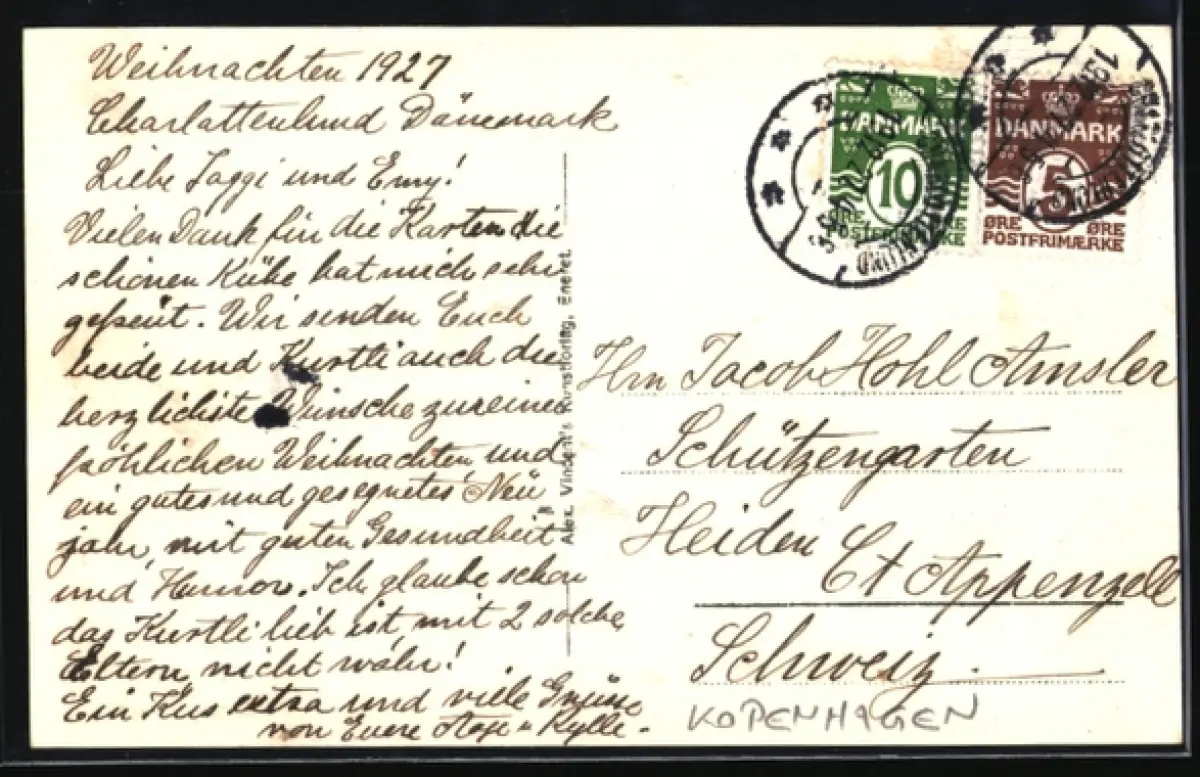 Weihnachten 1927
Charlattenlund Dänemark
Liebe Jaggi und Emy!
Vielen Dank für die Karten die
schönen Kühe hat mich sehr
gefreut. Wir senden Euch
beide und Kurtli auch die
herzlichste Wünsche zu einer
fröhlichen Weihnachten und
ein gutes und gesegnetes Neu
jahr, mit guten Gesundheit
und Humor. Ich glaube schon
das Kurtli lieb ist, mit 2 solche
Eltern, nicht wahr!
Ein Kus extra und viele Grüsse
von Euere
Alex. Vincent's Kunstforlag, Eneret.
DANMARK
10
ØRE ØRE
POSTFRIMÆRKE
DANMARK
5
ØRE ØRE
POSTFRIMÆRKE
Hrn Jacob Hohl Amsler
Schützengarten
Heiden Ct Appenzell
Schweiz.
KOPENHAGEN